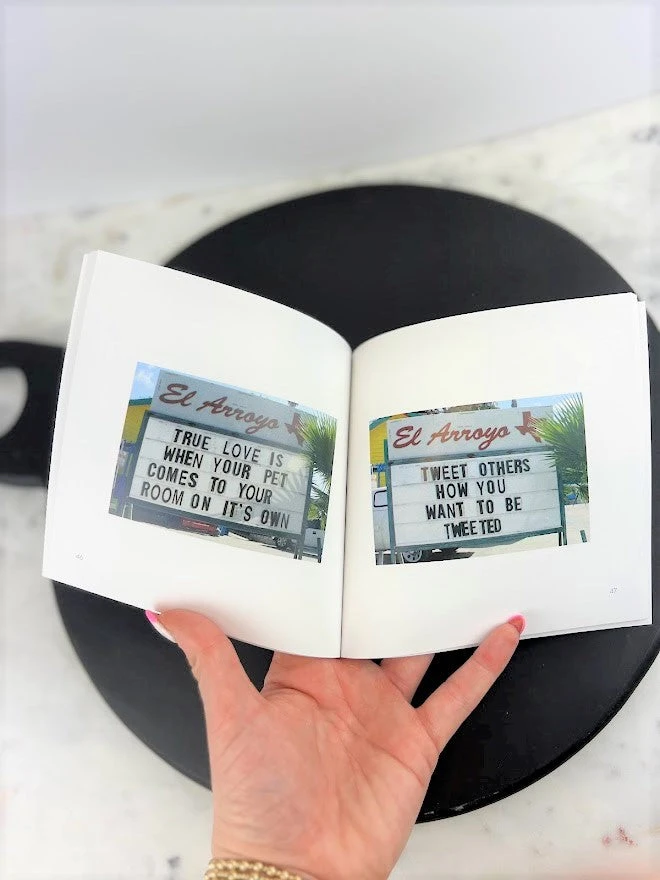 El Arroyo
TRUE LOVE IS
WHEN YOUR PET
COMES TO YOUR
ROOM ON IT'S OWN
46
El Arroyo
TWEET OTHERS
HOW YOU
WANT TO BE
TWEETED
47